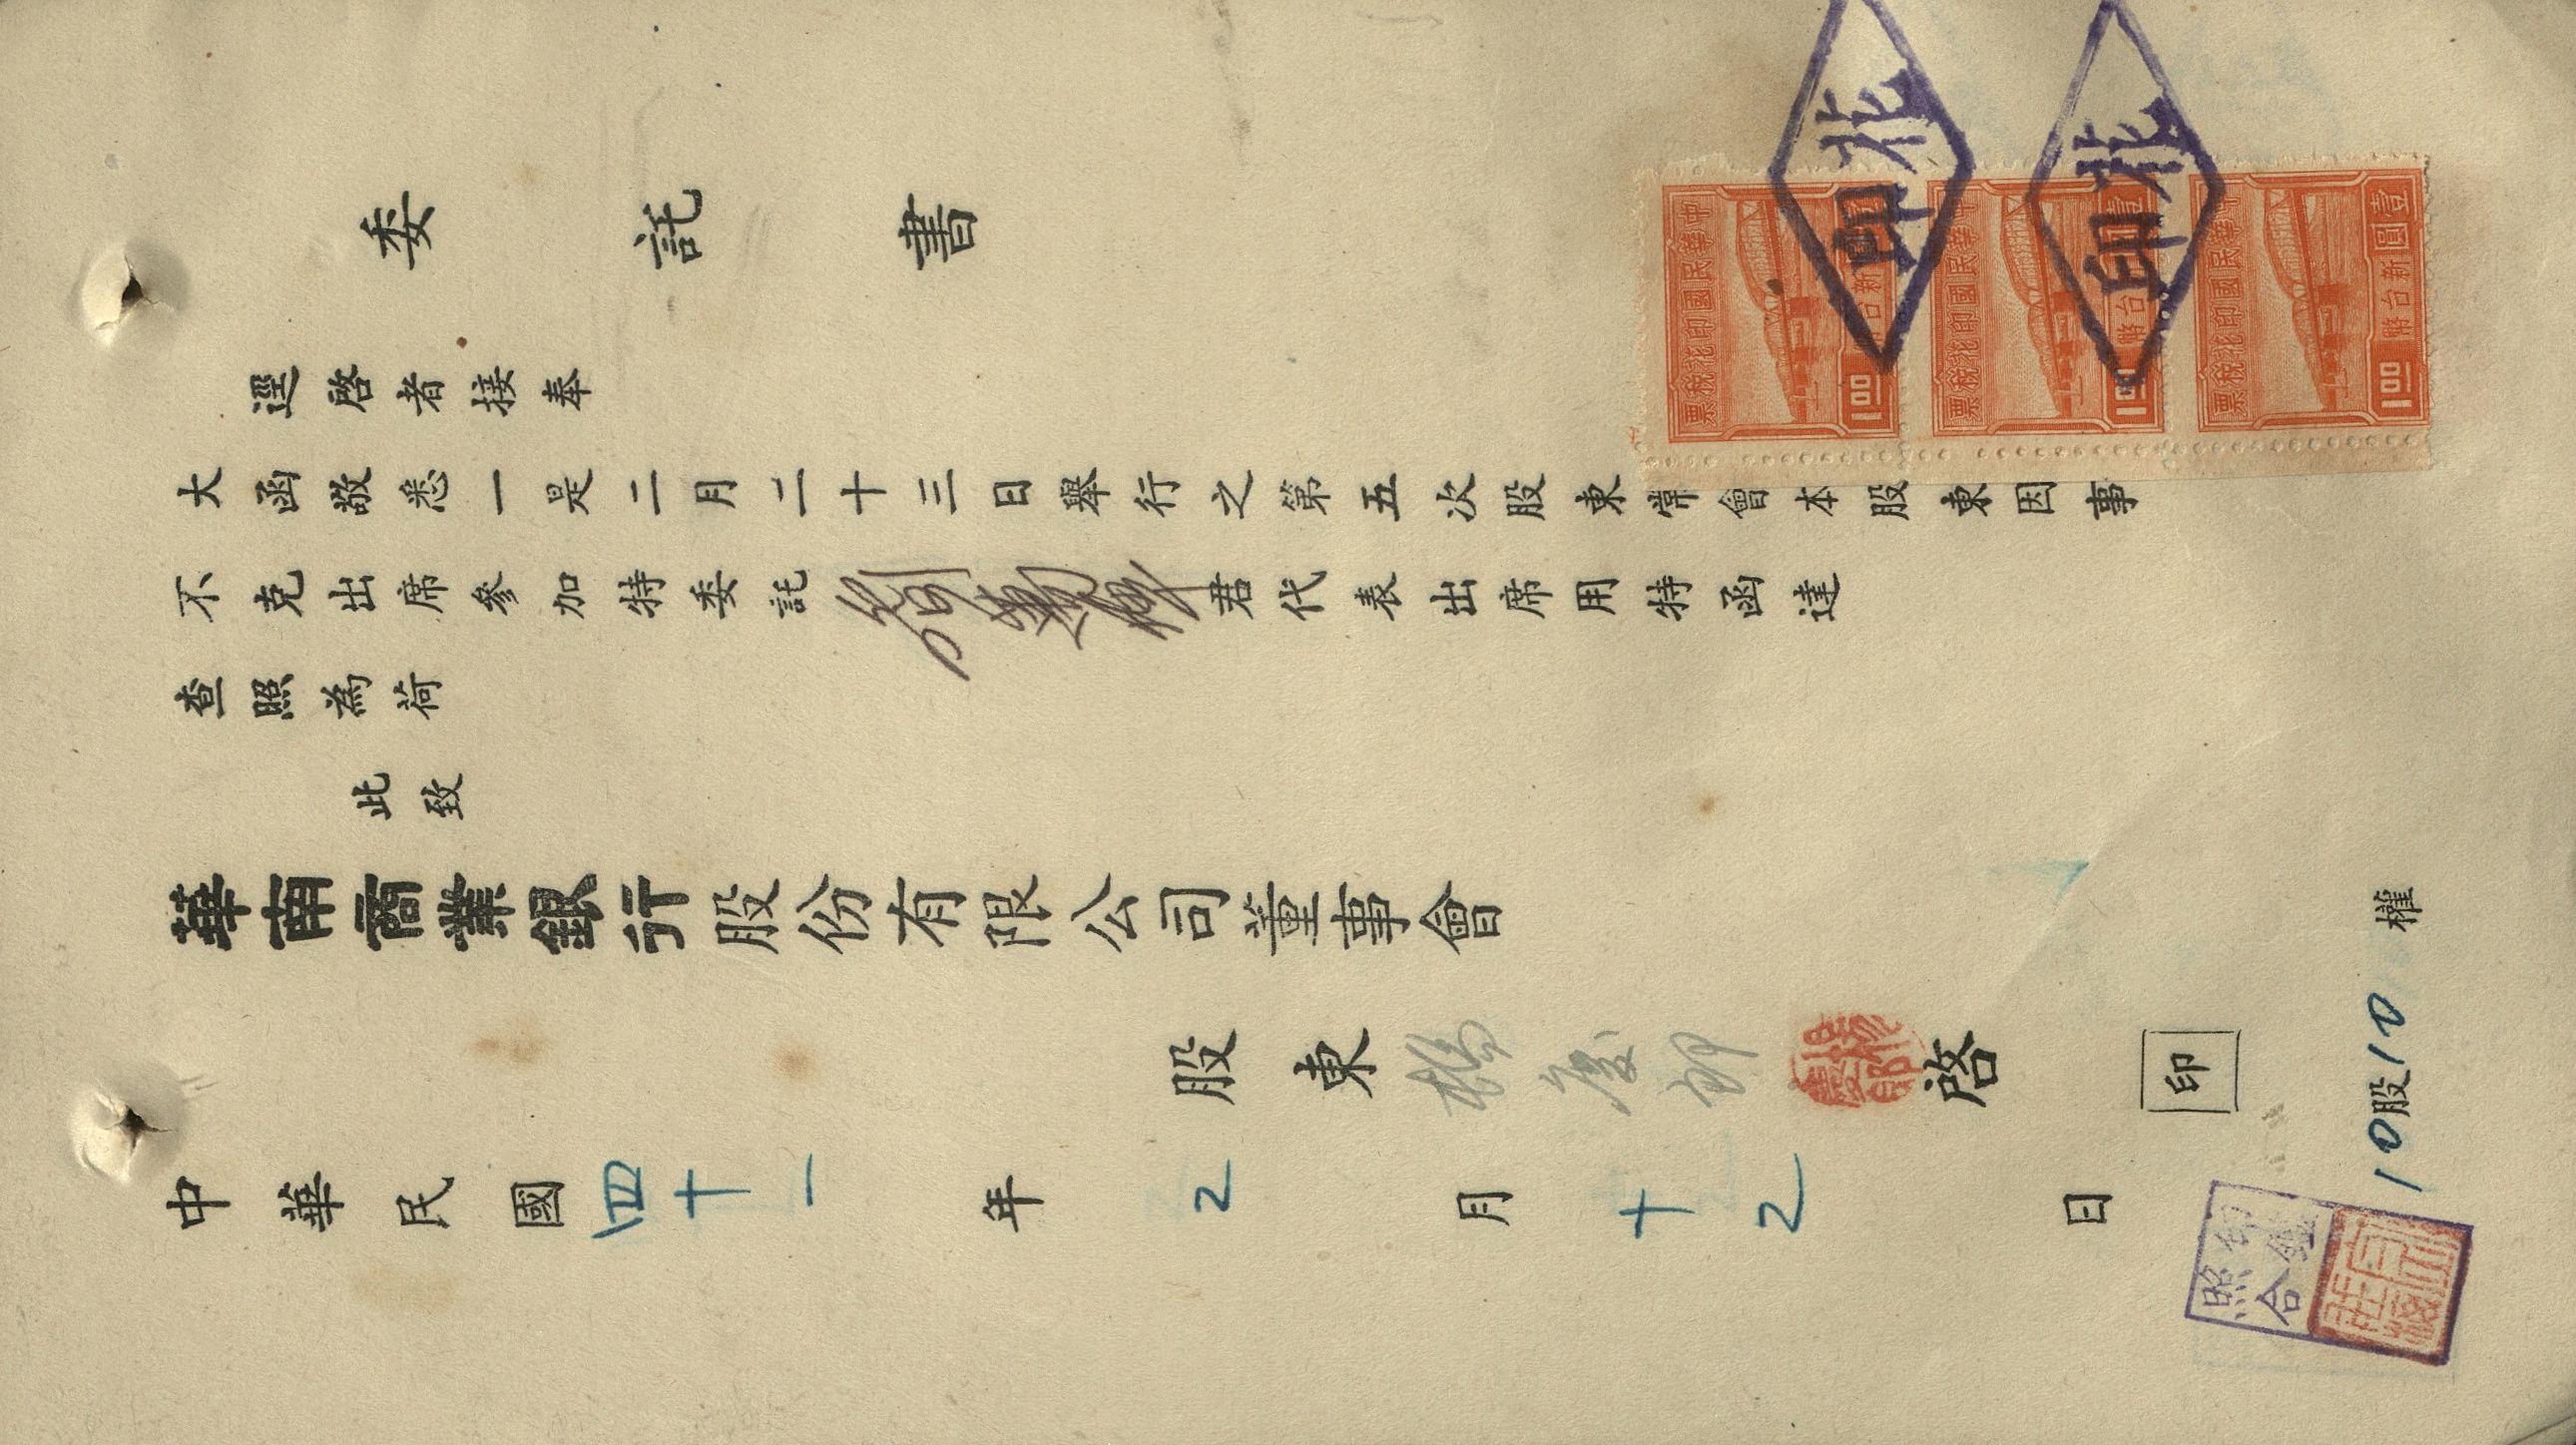 委託書
逕啓者接奉
大函敬悉一是二月二十三日舉行之第五次股東常會本股東因事
不克出席參加特委託劉 君代表出席用特函達
查照為荷
此致
華南商業銀行股份有限公司董事會
股東 啓 印
中華民國四十一年2月十2日
10股10權
中華民國印花稅票
新台幣
1.00
中華民國印花稅票
壹圓
新台幣
1.00
中華民國印花稅票
壹圓
新台幣
1.00
北
印
北
印
印鑑
照合